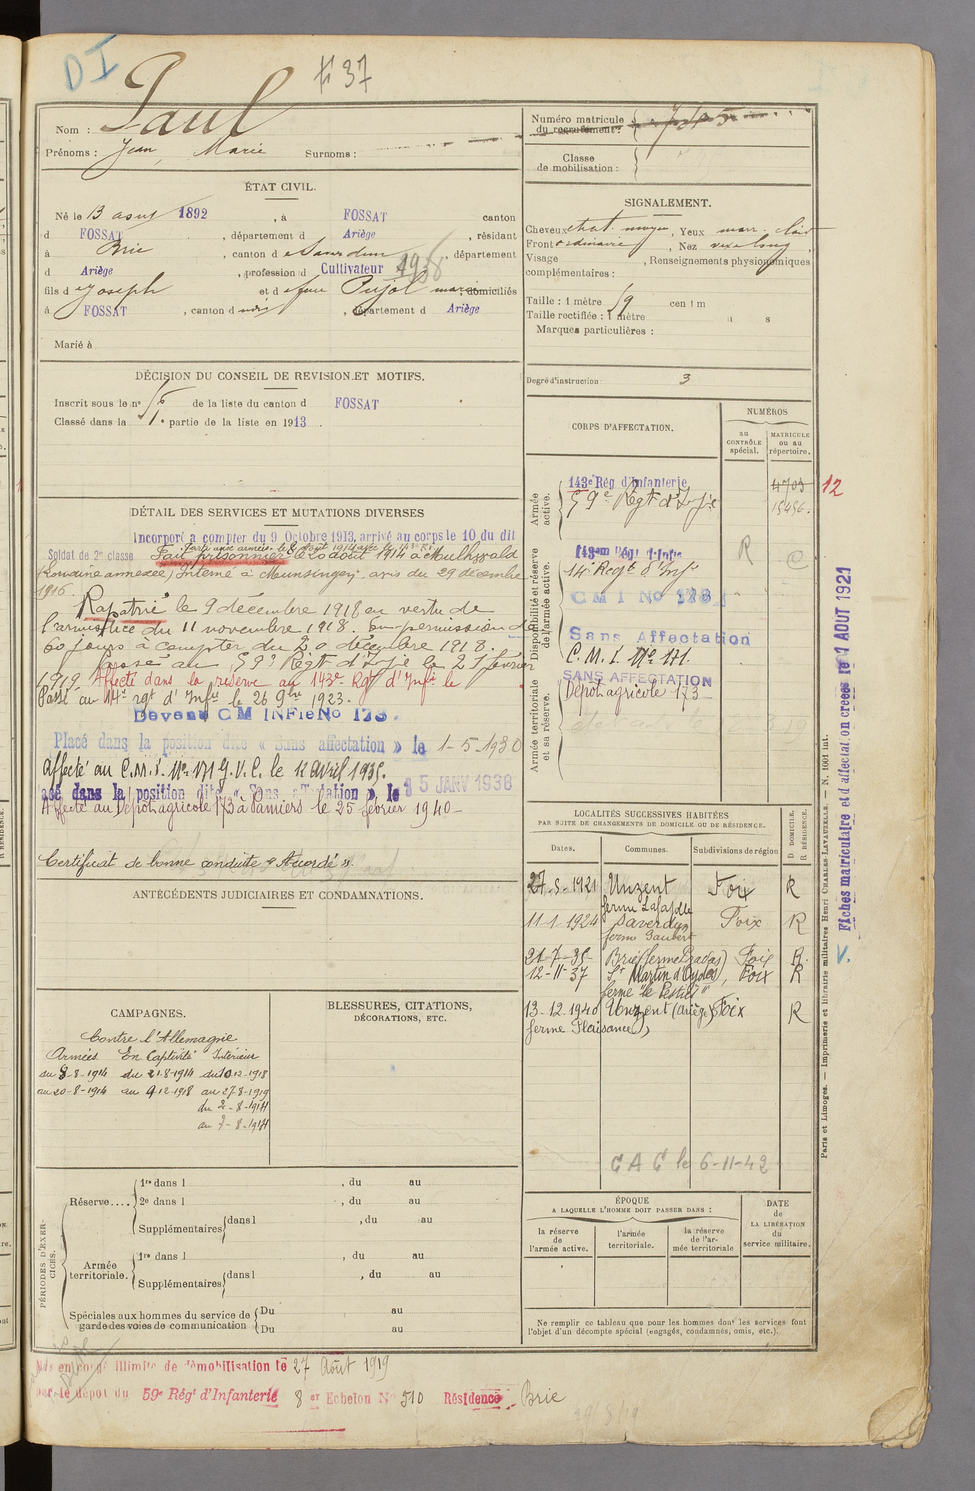 DI
37
Nom : Paul
Prénoms : Jean, Marie Surnoms :
ÉTAT CIVIL.
Né le 13 aout 1892, à FOSSAT canton
d FOSSAT, département d Ariège, résidant
à Brie, canton d e Saverdun, département
d Ariège, profession d Cultivateur 1938
fils d e Joseph et d e Pujol, domiciliés
à FOSSAT, canton d udit, département d Ariège
Marié à
DÉCISION DU CONSEIL DE REVISION ET MOTIFS.
Inscrit sous le n° de la liste du canton d FOSSAT
Classé dans la 1e partie de la liste en 1913.
DÉTAIL DES SERVICES ET MUTATIONS DIVERSES
Incorporé à compter du 9 Octobre 1913, arrivé au corps le 10 du dit
Soldat de 2e classe
Fait prisonnier le 20 août 1914 à
(Lorraine annexée) Interné à Munsingen avis du 29 décembre
1916.
Rapatrié le 9 décembre 1918 en vertu de
l'armistice du 11 novembre 1918. En permission de
60 jours à compter du 20 décembre 1918.
Passé au 59e Régt d'Infie le 21 février
1919. Affecté dans la réserve au 143e Rgt d'Infie le
Passé au 14e rgt d'Infie le 26 9bre 1923.
Devenu CM INFie No 173.
Placé dans la position dite « Sans affectation » le 1-5-1930
Affecté au C.M.I. No 171 G.V.C. le 12 avril 1935.
Placé dans la position dite « Sans affectation » le 15 JANV 1938
Affecté au Dépot agricole 173 à Pamiers le 25 février 1940 -
Certificat de bonne conduite « Accordé ».
ANTÉCÉDENTS JUDICIAIRES ET CONDAMNATIONS.
CAMPAGNES.
Contre l'Allemagne
Armées En Captivité Intérieur
du 8-8-1914 du 21-8-1914 du 10-12-1918
au 20-8-1914 au 9-12-1918 au 27-8-1919
du 2-8-1914
au 7-8-1914
BLESSURES, CITATIONS,
DÉCORATIONS, ETC.
PÉRIODES D'EXERCICES.
Réserve.... 1re dans l , du au
2e dans l , du au
Supplémentaires dans l , du au
Armée territoriale. 1re dans l , du au
Supplémentaires dans l , du au
Spéciales aux hommes du service de garde des voies de communication Du au
Du au
Mis en congé illimité de démobilisation le 27 Août 1919
par le dépot du 59e Régt d'Infanterie 8 er Echelon No 510 Résidence Brie
Numéro matricule
du recrutement :
Classe
de mobilisation :
SIGNALEMENT.
Cheveux chat. moyen, Yeux marr. clair
Front ordinaire, Nez long,
Visage , Renseignements physionomiques
complémentaires :
Taille : 1 mètre 59 centim
Taille rectifiée : 1 mètre
Marques particulières :
Degré d'instruction : 3
CORPS D'AFFECTATION.
NUMÉROS
au CONTRÔLE spécial.
MATRICULE ou au répertoire.
Armée active.
143e Rég d'Infanterie 4703 12
59e Régt d'Infie 15456.
Disponibilité et réserve de l'armée active.
143em Régt d'Infie R
14e Regt d'Infie
CMI No
Sans Affectation
C.M.I. No 171.
Armée territoriale et sa réserve.
SANS AFFECTATION
Dépot agricole 173
LOCALITÉS SUCCESSIVES HABITÉES
PAR SUITE DE CHANGEMENTS DE DOMICILE OU DE RÉSIDENCE.
Dates. Communes. Subdivisions de région D DOMICILE. R RÉSIDENCE.
27-5-1921 Unzent Foix R
ferme
11-1-1924 Saverdun Foix R
ferme Gaubert
21-7-35- Brie (ferme ) Foix R.
12-11-37 St Martin d'Oydes, Foix R
ferme "le Pestil"
13-12-1940 Unzent (Ariège) Foix R
(ferme Plaisance)
C A C le 6-11-42
ÉPOQUE
A LAQUELLE L'HOMME DOIT PASSER DANS :
la réserve de l'armée active.
l'armée territoriale.
la réserve de l'armée territoriale
DATE de LA LIBÉRATION du service militaire.
Ne remplir ce tableau que pour les hommes dont les services font
l'objet d'un décompte spécial (engagés, condamnés, omis, etc.).
Paris et Limoges. — Imprimerie et librairie militaires Henri CHARLES-LAVAUZELLE. — N. 1001 int.
V. Fiches matriculaire et d'affectation créées le 1 AOUT 1921